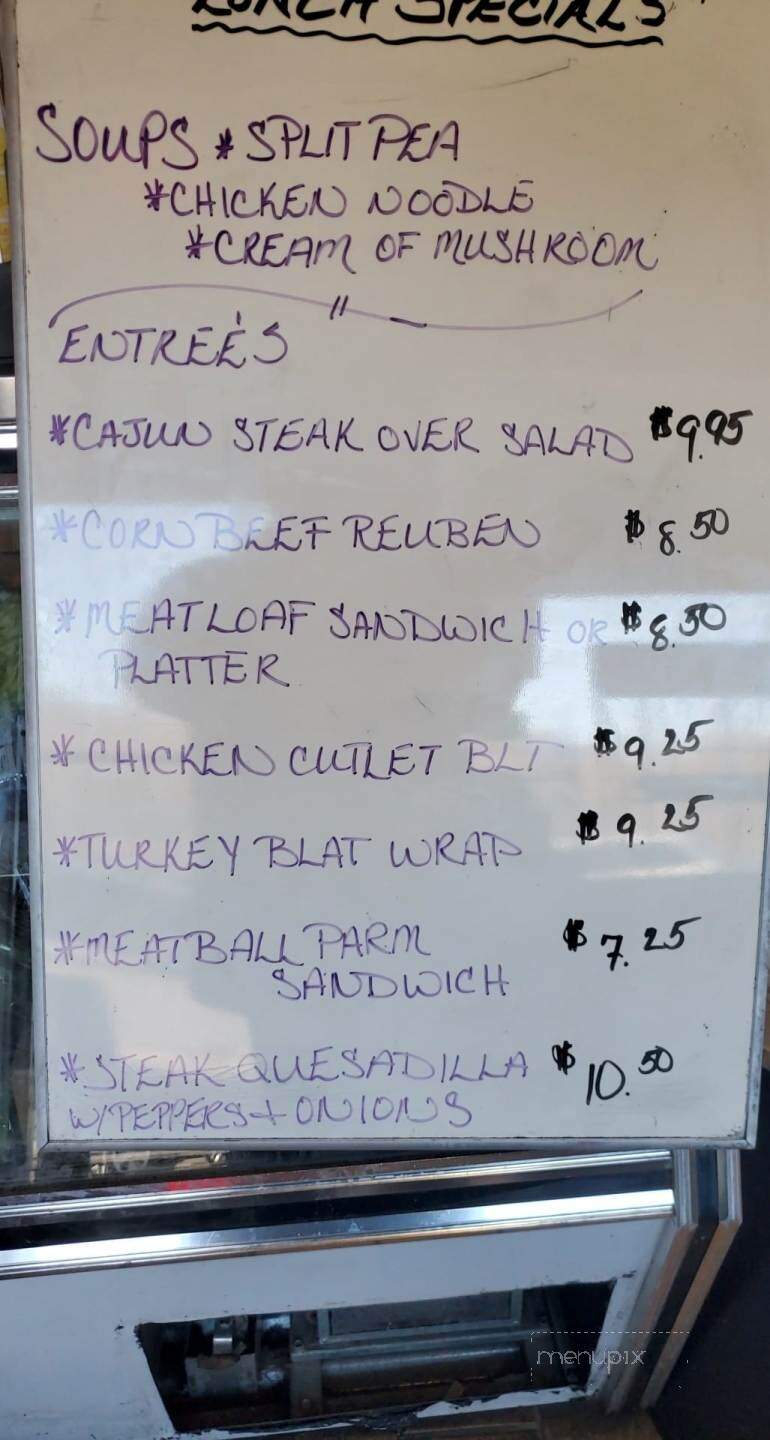 LUNCH SPECIALS
SOUPS * SPLIT PEA
*CHICKEN NOODLE
*CREAM OF MUSHROOM
ENTREÉS
*CAJUN STEAK OVER SALAD $9.95
*CORN BEEF REUBEN $8.50
*MEATLOAF SANDWICH OR $8.50
PLATTER
*CHICKEN CUTLET BLT $9.25
*TURKEY BLAT WRAP $9.25
*MEATBALL PARM $7.25
SANDWICH
*STEAK QUESADILLA $10.50
W/PEPPERS + ONIONS
menupix